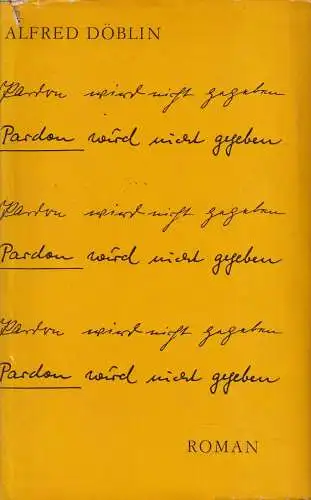 ALFRED DÖBLIN
Pardon wird nicht gegeben
Pardon wird nicht gegeben
Pardon wird nicht gegeben
Pardon wird nicht gegeben
Pardon wird nicht gegeben
Pardon wird nicht gegeben
ROMAN